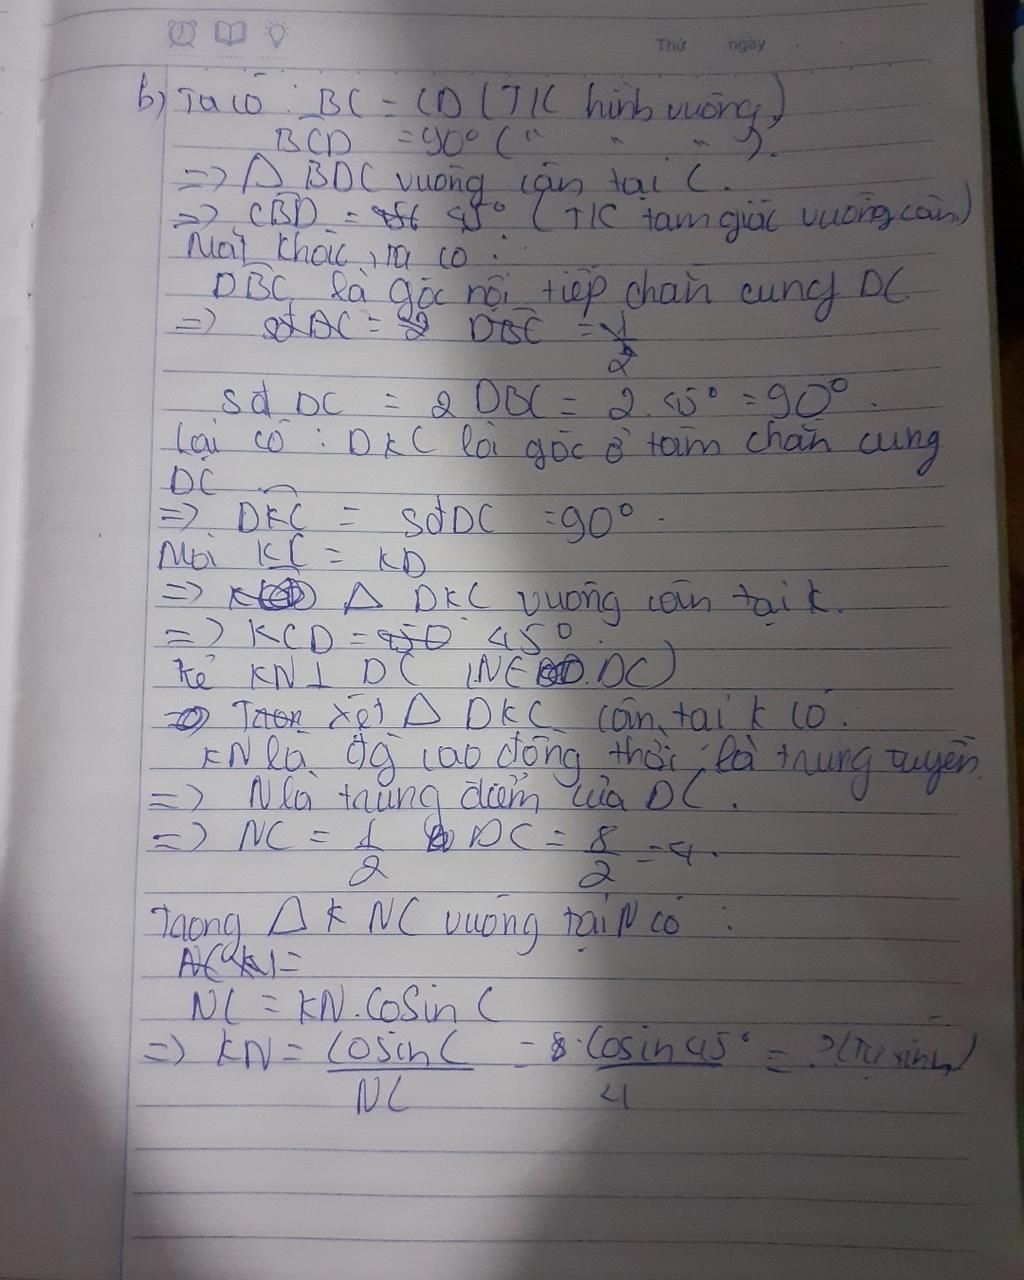 Thứ ngày
b) Ta có : BC = CD (T/C hình vuông)
BCD = 90° ( " " " ).
=> Δ BDC vuông cân tại C.
=> CBD = 45° (T/C tam giác vuông cân)
Mặt khác, ta có :
DBC là góc nội tiếp chắn cung DC
=> sđ DC = 2 DBC = 1/2
Sđ DC = 2 DBC = 2.45° = 90°.
Lại có : DKC là góc ở tâm chắn cung
DC
=> DKC = Sđ DC = 90°.
Mà KC = KD
=> Δ DKC vuông cân tại k.
=> KCD = 45°.
Kẻ KN ⊥ DC (N ∈ DC)
Xét Δ DKC cân tại k có.
KN là đg cao đồng thời là trung tuyến
=> N là trung điểm của DC.
=> NC = 1/2 DC = 8/2 = 4.
Trong Δ K NC vuông tại N có :
NC = KN . Cosin C
=> KN = Cosin C / NC = 8. Cosin 45° / 4 = ? (Tự tính)